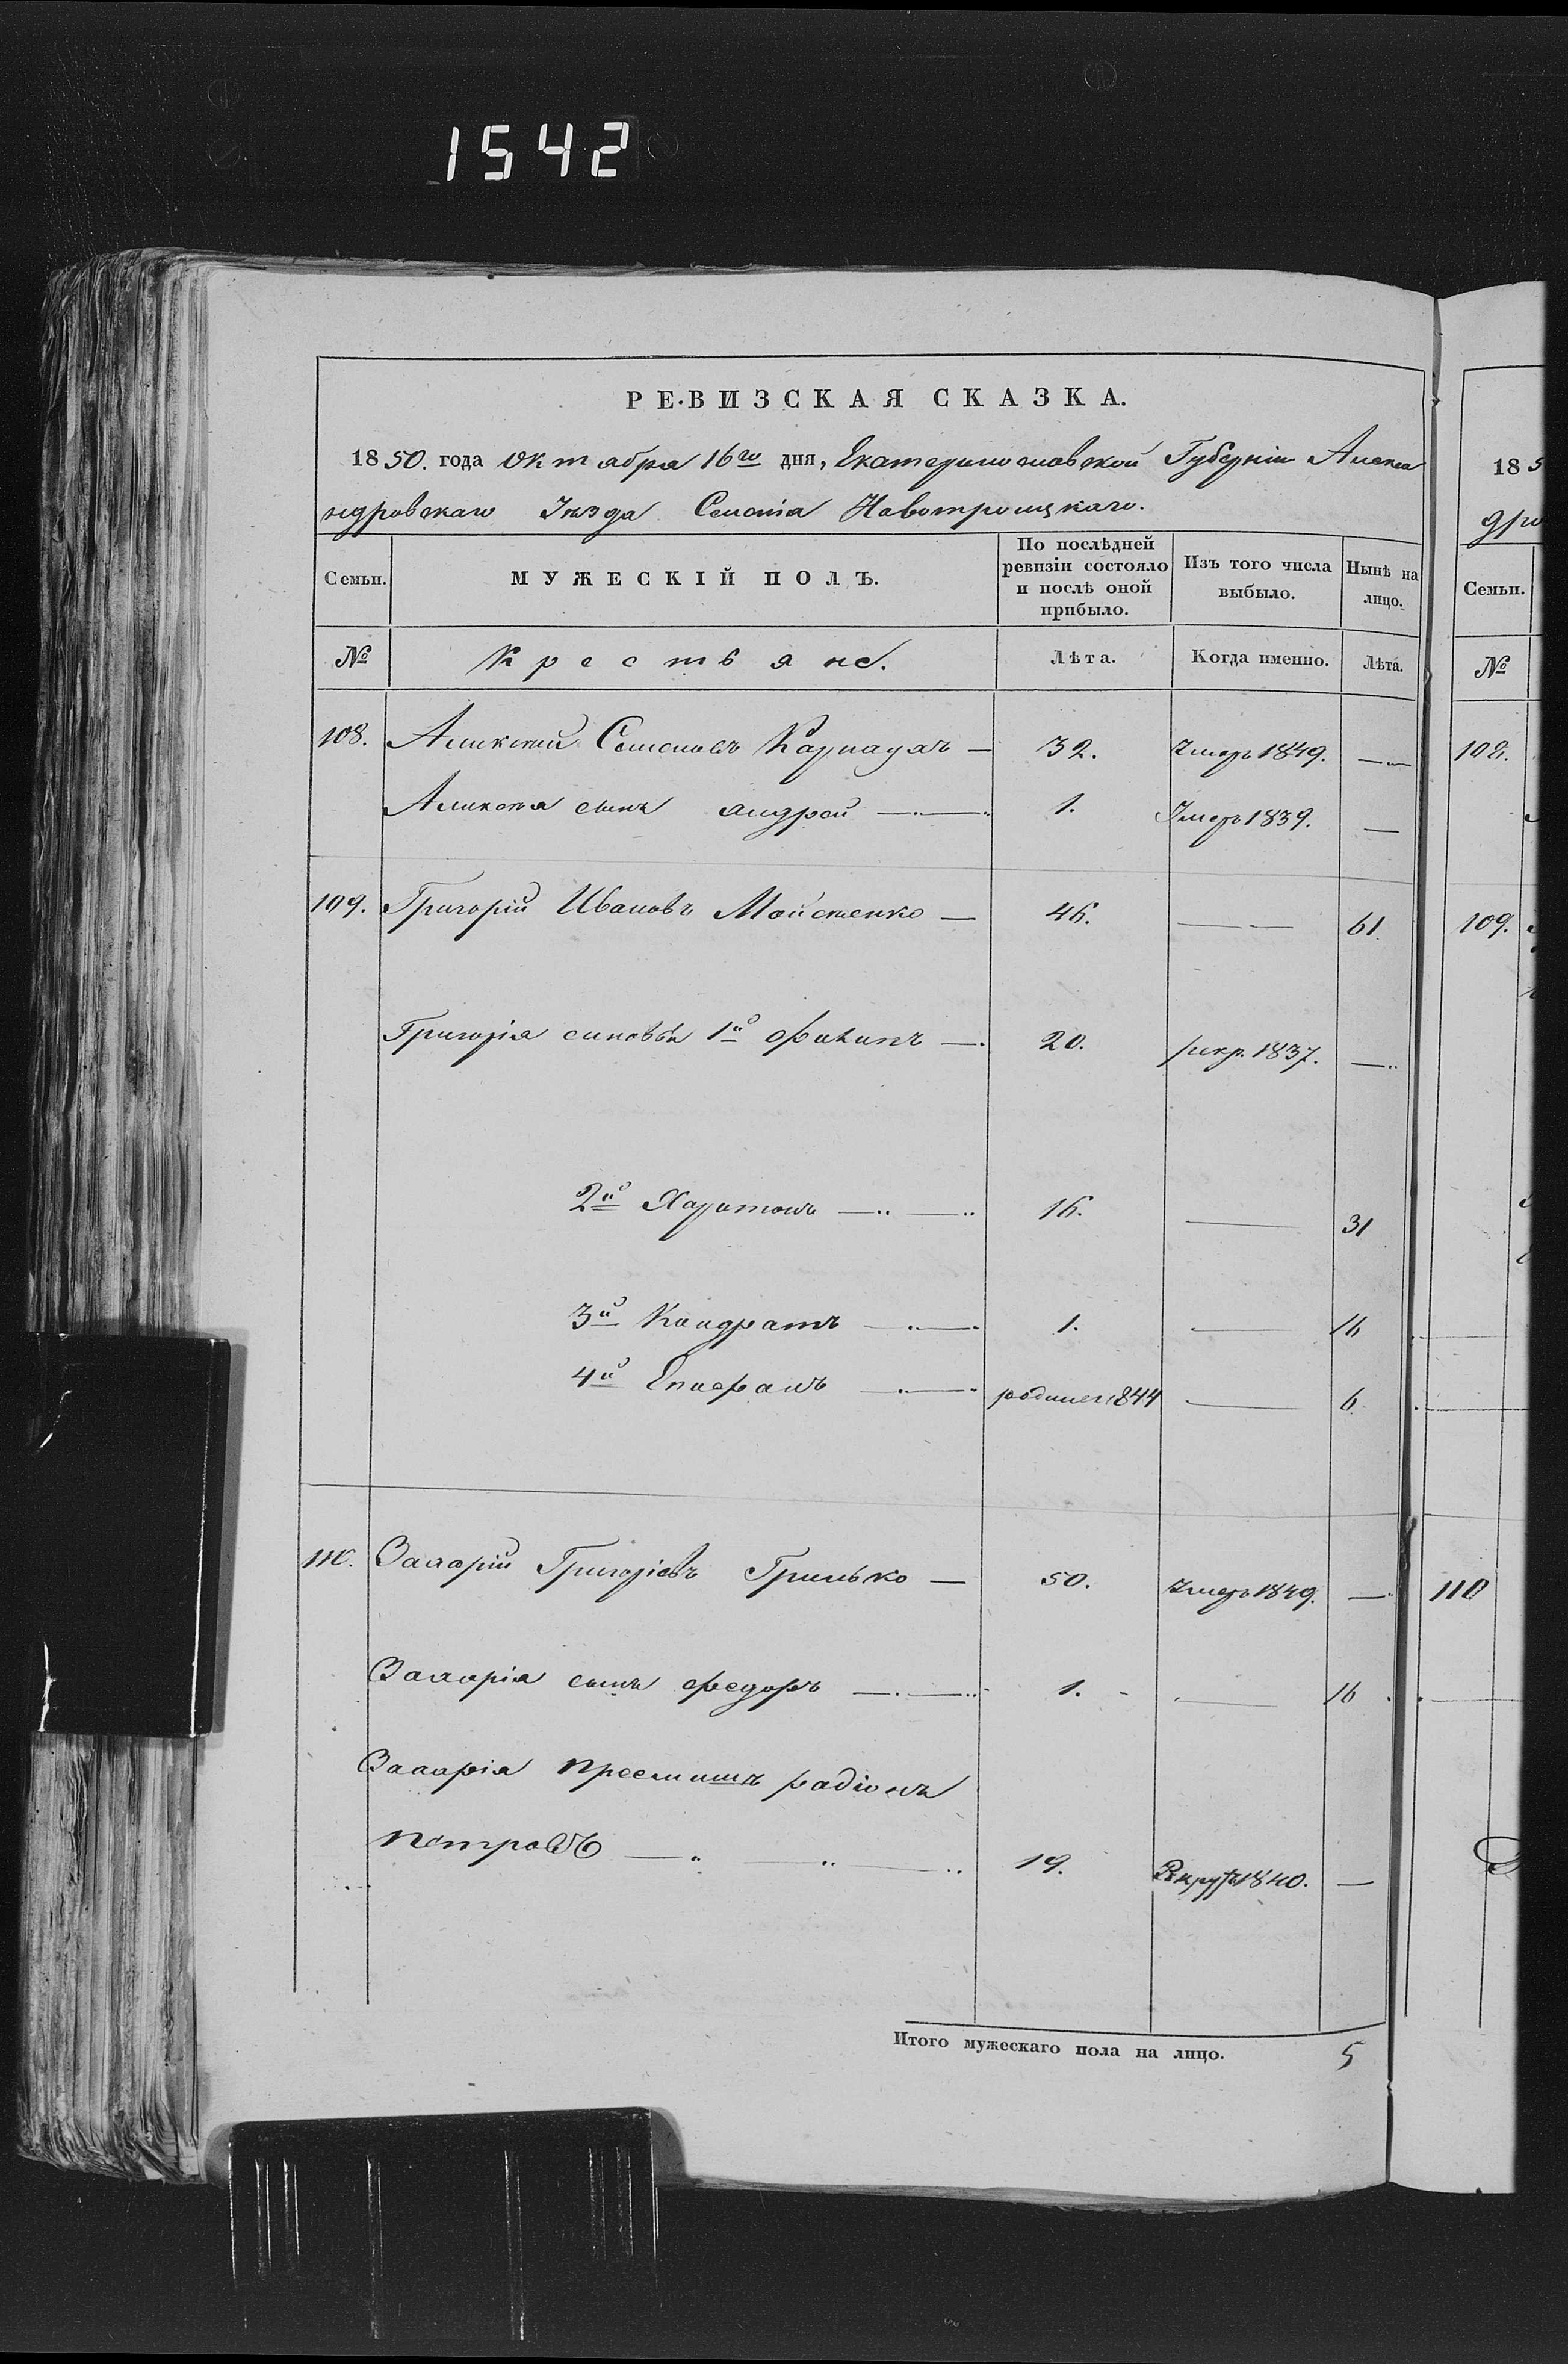 1542
РЕВИЗСКАЯ СКАЗКА.
1850. года Октября 16го дня, Екатеринославской Губерніи Алекса
ндровскаго Уѣзда Селенія Новотроицкаго.
Семьи. МУЖЕСКІЙ ПОЛЪ. По послѣдней ревизіи состояло и послѣ оной прибыло. Изъ того числа выбыло. Нынѣ на лицо.
№ Крестьяне. Лѣта. Когда именно. Лѣта.
108. Аликсей Семеновъ Карнаухъ — 32. Умеръ 1849. —
Аликсея сынъ андрей — 1. Умеръ 1839. —
109. Григорій Ивановъ Мойсеенко — 46. — 61
Григорія синовья 1й 20. рекр. 1837. —
2й Харитонъ — 16. — 31
3й Кондратъ — 1. — 16
4й Епифанъ — родился 1844 — 6
110. Захарій Григоріевъ Гринько — 50. Умеръ 1849. —
Захарія сынъ федоръ — 1. — 16
Захарія преемишъ радіонъ
петровъ — 19. Рекрутъ 1840. —
Итого мужескаго пола на лицо. 5
185
дро
Семьи.
№
108.
109.
110